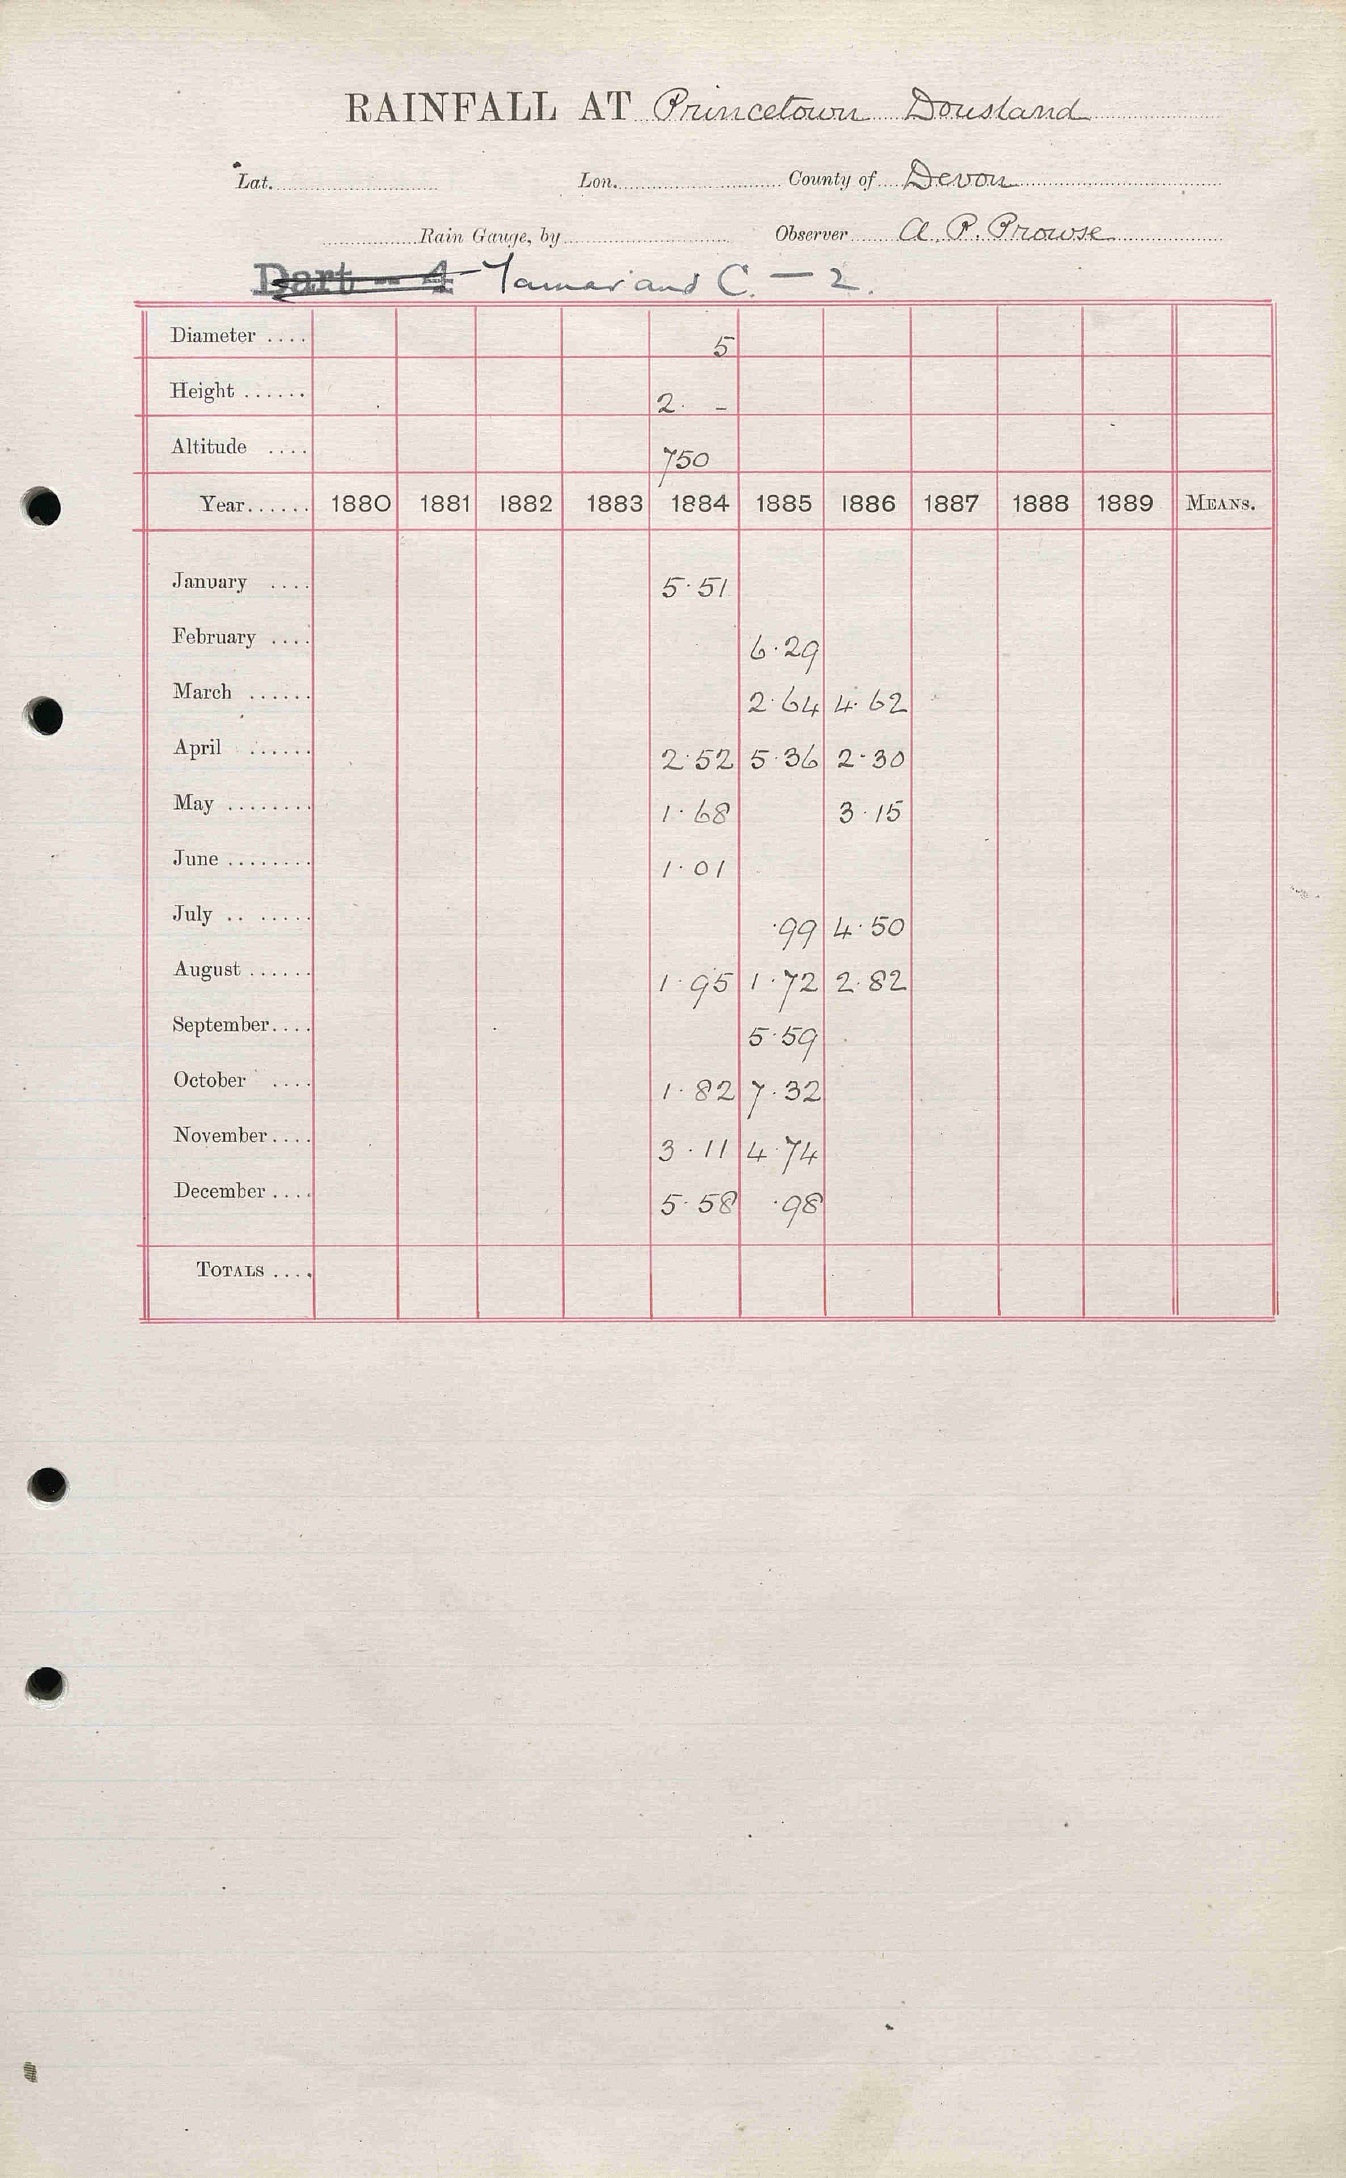 RAINFALL AT Princetown Dousland
Lat. Lon. County of Devon
Rain Gauge, by Observer A. P. Prowse
Dart - 4 Tamar and C. — 2.
Diameter .... 5
Height ...... 2. -
Altitude .... 750
Year...... 1880 1881 1882 1883 1884 1885 1886 1887 1888 1889 MEANS.
January .... 5.51
February .... 6.29
March ...... 2.64 4.62
April ...... 2.52 5.36 2.30
May ........ 1.68 3.15
June ........ 1.01
July .. ..... .99 4.50
August ...... 1.95 1.72 2.82
September.... 5.59
October .... 1.82 7.32
November.... 3.11 4.74
December .... 5.58 .98
TOTALS ....